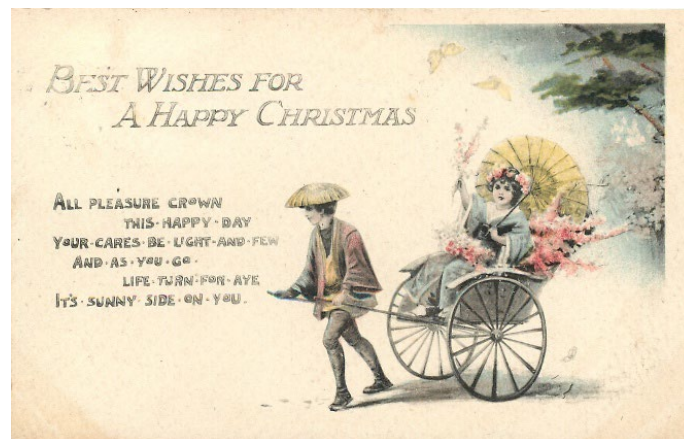 BEST WISHES FOR
A HAPPY CHRISTMAS
ALL PLEASURE CROWN
THIS·HAPPY·DAY
YOUR·CARES·BE·LIGHT·AND·FEW
AND·AS·YOU·GO·
LIFE·TURN·FOR·AYE
IT'S·SUNNY·SIDE·ON·YOU.